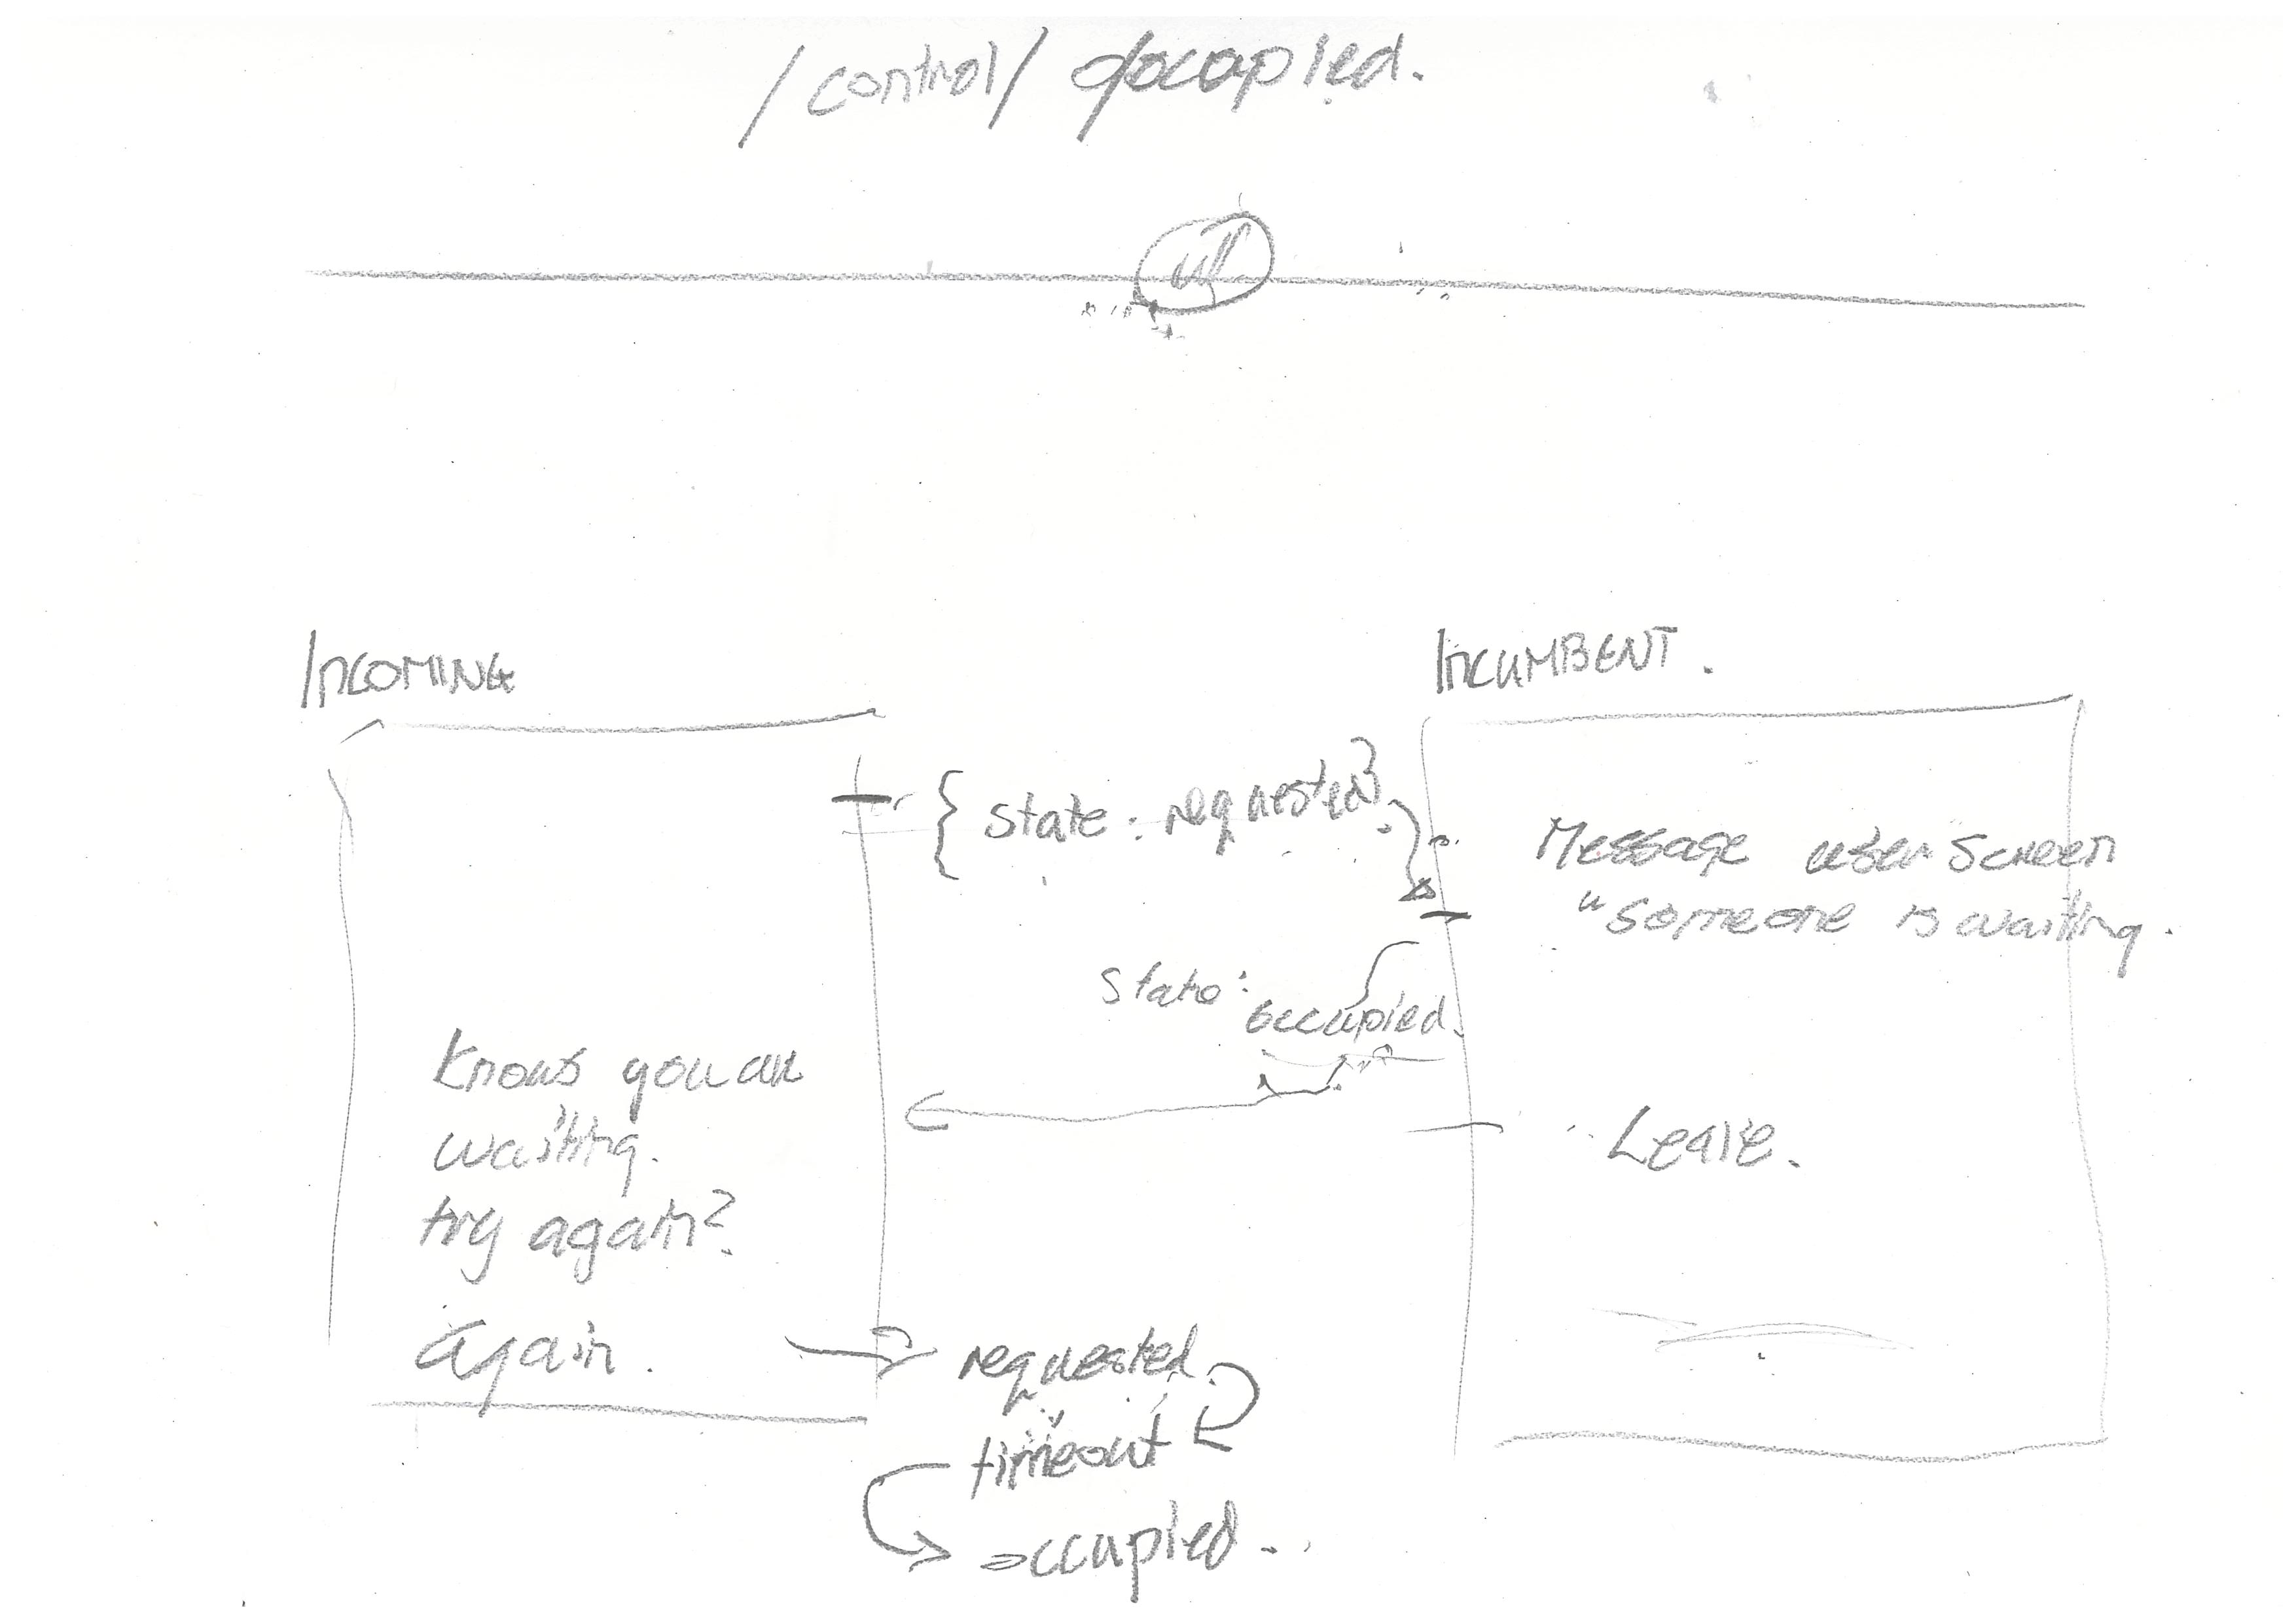 /control/ occupied.
INCOMING
INCUMBENT.
{ state: requested }
Message user screen
"someone is waiting.
state: occupied.
Knows you are
waiting.
Leave.
try again?
again.
requested.
timeout
occupied..